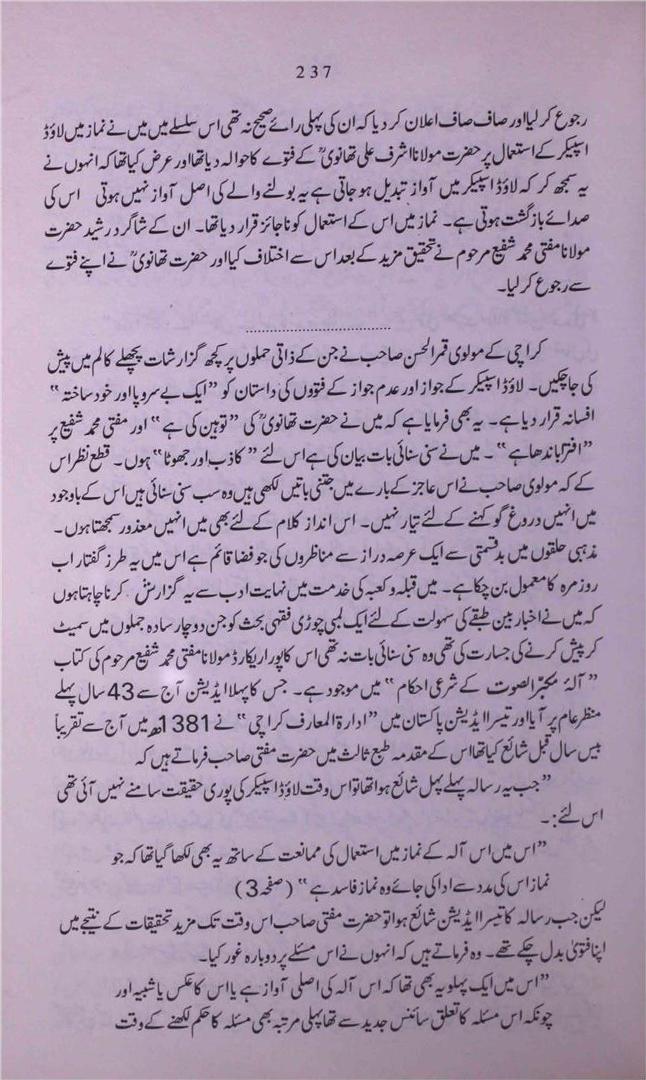 237
رجوع کر لیا اور صاف صاف اعلان کر دیا کہ ان کی پہلی رائے صحیح نہ تھی اس سلسلے میں میں نے نماز میں لاؤڈ
اسپیکر کے استعمال پر حضرت مولانا اشرف علی تھانویؒ کے فتوے کا حوالہ دیا تھا اور عرض کیا تھا کہ انہوں نے
یہ سمجھ کر کہ لاؤڈ اسپیکر میں آواز تبدیل ہو جاتی ہے یہ بولنے والے کی اصل آواز نہیں ہوتی اس کی
صدائے بازگشت ہوتی ہے۔ نماز میں اس کے استعمال کو ناجائز قرار دیا تھا۔ ان کے شاگرد رشید حضرت
مولانا مفتی محمد شفیع مرحوم نے تحقیق مزید کے بعد اس سے اختلاف کیا اور حضرت تھانویؒ نے اپنے فتوے
سے رجوع کر لیا۔
........................
کراچی کے مولوی قمر الحسن صاحب نے جن کے ذاتی حملوں پر کچھ گزارشات پچھلے کالم میں پیش
کی جا چکیں۔ لاؤڈ اسپیکر کے جواز اور عدم جواز کے فتووں کی داستان کو ”ایک بے سر و پا اور خود ساختہ“
افسانہ قرار دیا ہے۔ یہ بھی فرمایا ہے کہ میں نے حضرت تھانویؒ کی ”توہین کی ہے“ اور مفتی محمد شفیع پر
”افترا باندھا ہے“۔ میں نے سنی سنائی بات بیان کی ہے اس لئے ”کاذب اور جھوٹا“ ہوں۔ قطع نظر اس
کے کہ مولوی صاحب نے اس عاجز کے بارے میں جتنی باتیں لکھی ہیں وہ سب سنی سنائی ہیں اس کے باوجود
میں انہیں دروغ گو کہنے کے لئے تیار نہیں۔ اس انداز کلام کے لئے بھی میں انہیں معذور سمجھتا ہوں۔
مذہبی حلقوں میں بدقسمتی سے ایک عرصہ دراز سے مناظروں کی جو فضا قائم ہے اس میں یہ طرز گفتار اب
روزمرہ کا معمول بن چکا ہے۔ میں قبلہ و کعبہ کی خدمت میں نہایت ادب سے یہ گزارش کرنا چاہتا ہوں
کہ میں نے اخبار بین طبقے کی سہولت کے لئے ایک لمبی چوڑی فقہی بحث کو جن دو چار سادہ جملوں میں سمیٹ
کر پیش کرنے کی جسارت کی تھی وہ سنی سنائی بات نہ تھی اس کا پورا ریکارڈ مولانا مفتی محمد شفیع مرحوم کی کتاب
”آلۂ مکبّر الصوت کے شرعی احکام“ میں موجود ہے۔ جس کا پہلا ایڈیشن آج سے 43 سال پہلے
منظر عام پر آیا اور تیسرا ایڈیشن پاکستان میں ”ادارۃ المعارف کراچی“ نے 1381ھ میں آج سے تقریباً
بیس سال قبل شائع کیا تھا اس کے مقدمہ طبع ثالث میں حضرت مفتی صاحب فرماتے ہیں کہ
”جب یہ رسالہ پہلے پہل شائع ہوا تھا تو اس وقت لاؤڈ اسپیکر کی پوری حقیقت سامنے نہیں آئی تھی
اس لئے:۔
”اس میں اس آلہ کے نماز میں استعمال کی ممانعت کے ساتھ یہ بھی لکھا گیا تھا کہ جو
نماز اس کی مدد سے ادا کی جائے وہ نماز فاسد ہے“ (صفحہ 3)
لیکن جب رسالہ کا تیسرا ایڈیشن شائع ہوا تو حضرت مفتی صاحب اس وقت تک مزید تحقیقات کے نتیجے میں
اپنا فتویٰ بدل چکے تھے۔ وہ فرماتے ہیں کہ انہوں نے اس مسئلے پر دوبارہ غور کیا۔
”اس میں ایک پہلو یہ بھی تھا کہ اس آلہ کی اصلی آواز ہے یا اس کا عکس یا شبیہ اور
چونکہ اس مسئلہ کا تعلق سائنس جدید سے تھا پہلی مرتبہ بھی مسئلہ کا حکم لکھنے کے وقت